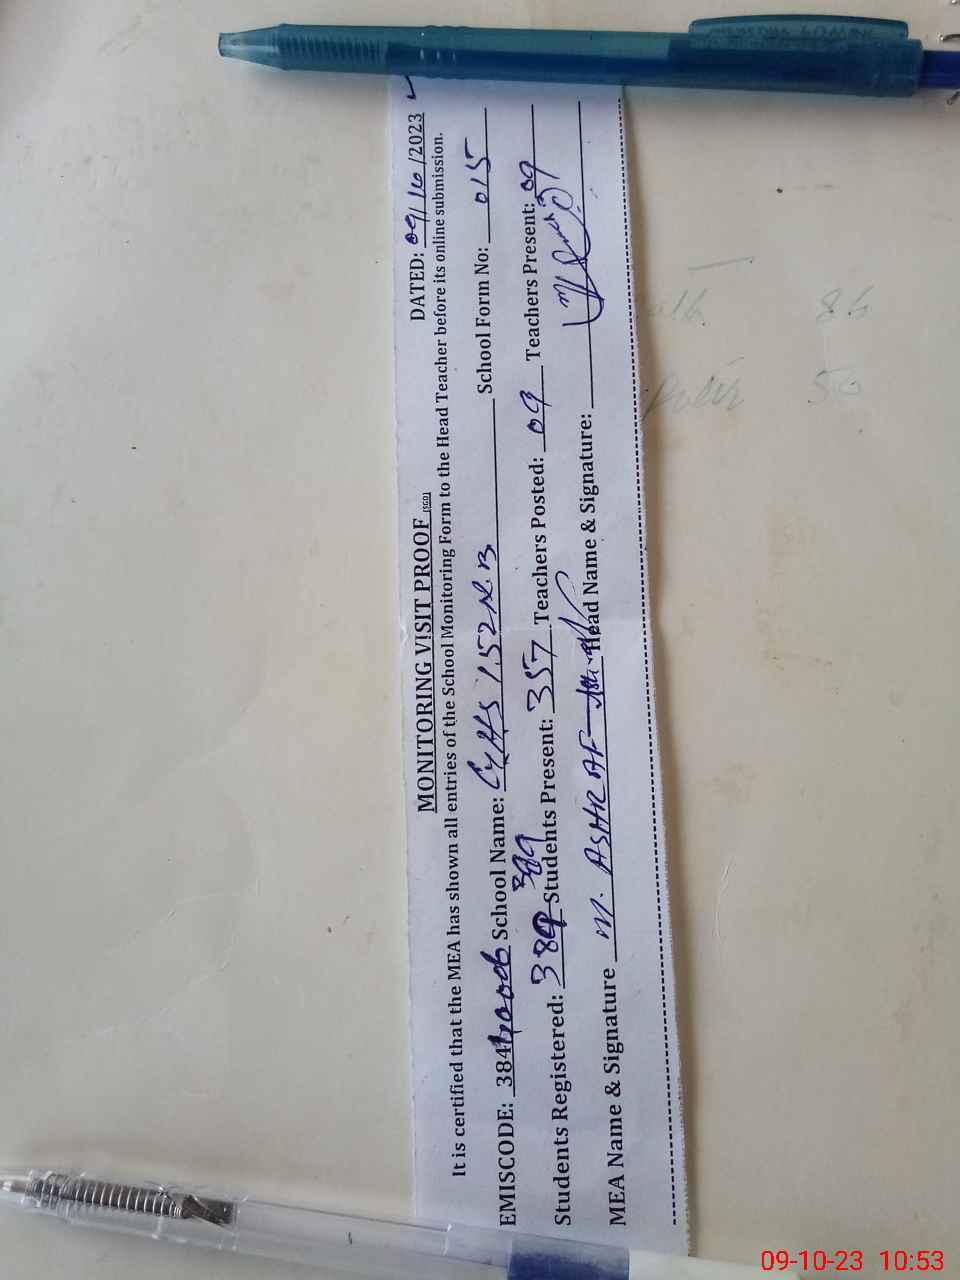 MONITORING VISIT PROOF (SGD) DATED: 09/10/2023
It is certified that the MEA has shown all entries of the School Monitoring Form to the Head Teacher before its online submission.
EMISCODE: 384 School Name: GHS 152 N.B School Form No: 015
389
Students Registered: 389 Students Present: 357 Teachers Posted: 09 Teachers Present: 09
MEA Name & Signature M. ASHRAF Head Name & Signature:
86
50
09-10-23 10:53